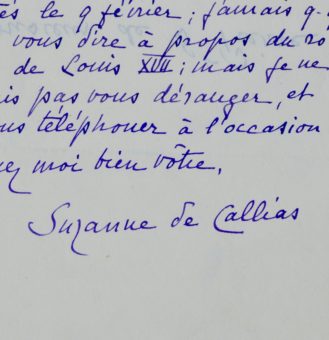 le 9 février ; jamais
vous dire à propos du
de Louis XVII ; mais je ne
pas vous déranger, et
téléphoner à l'occasion
moi bien vôtre,
Suzanne de Callias